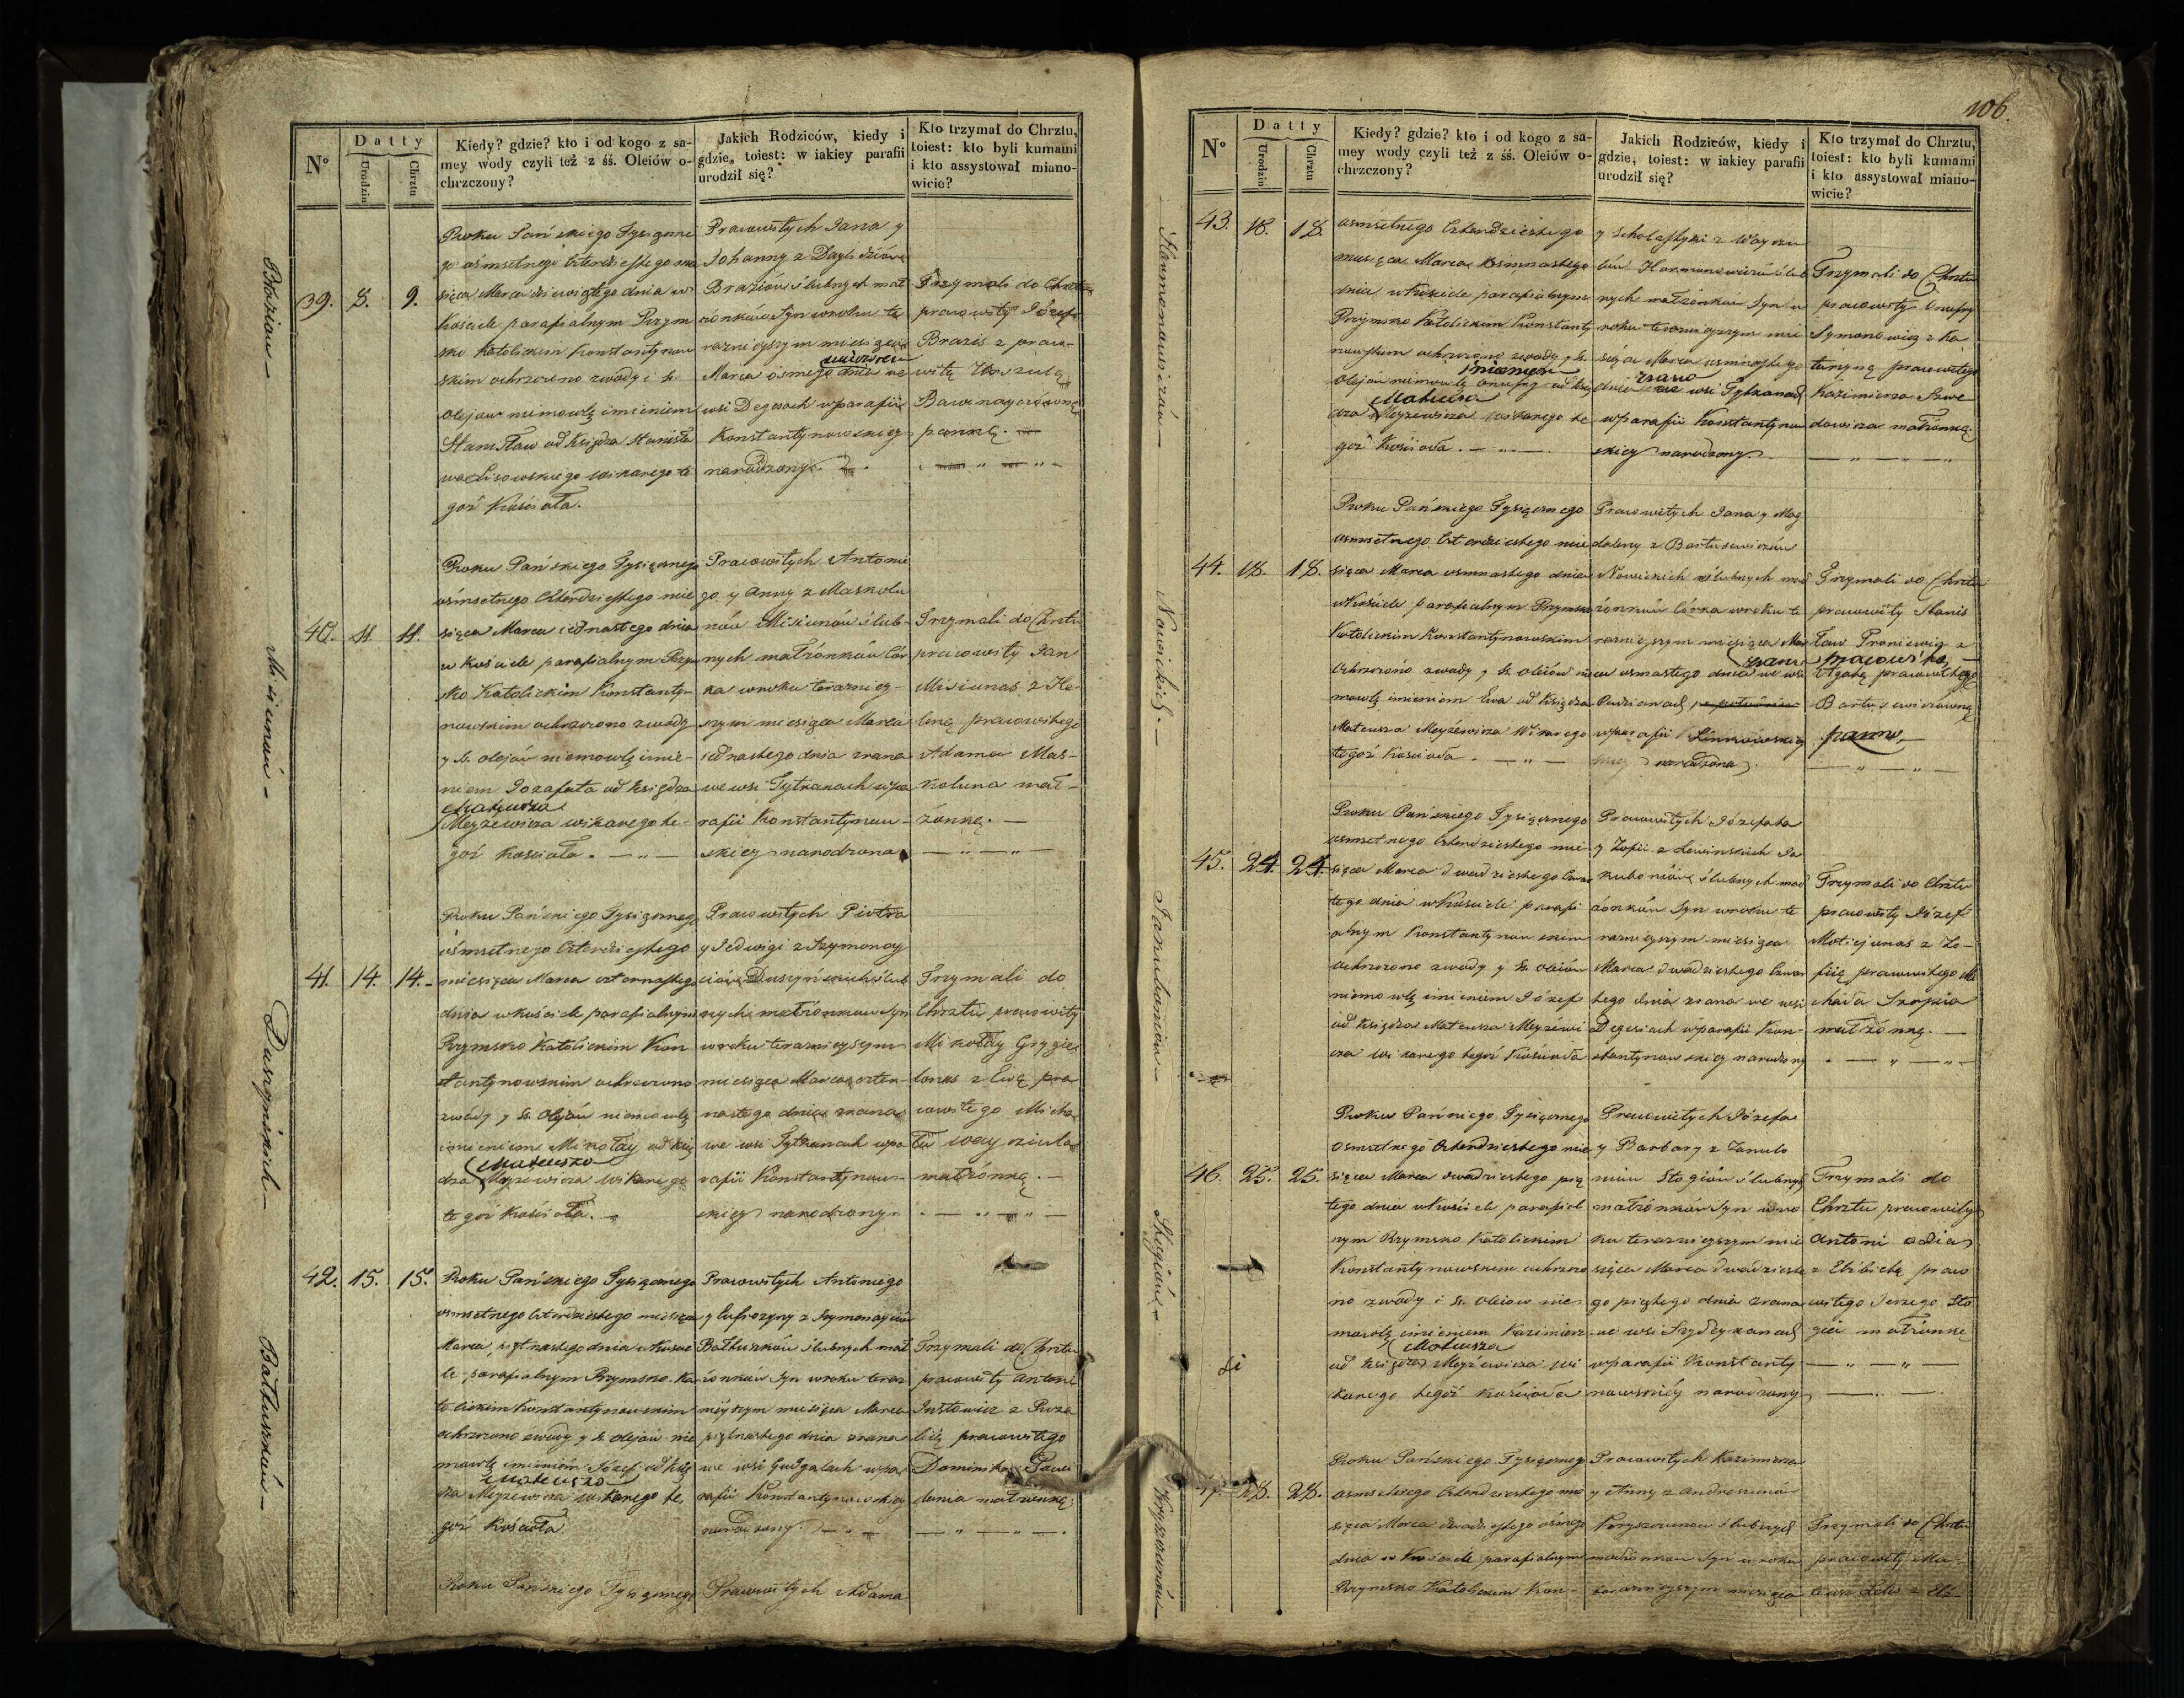 N°
Datty
Urodzin
Chrztu
Kiedy? gdzie? kto i od kogo z sa-
mey wody czyli też z śś. Oleiów o-
chrzczony?
Jakich Rodziców, kiedy i
gdzie, toiest: w iakiey parafii
urodził się?
Kto trzymał do Chrztu,
toiest: kto byli kumami
i kto assystował miano-
wicie?
Braziów
39. 8. 9.
Roku Pańskiego Tysiączne
go ośmsetnego Czterdziestego mie
sięca Marca dziewiątego dnia w
Kościele parafialnym Rzym
sko Katolickim Konstantynow
skim ochrzczono z wody i ś.
Olejow niemowlę imieniem
Stanisław od Księdza Stanisła
wa Lisowskiego wikarego te
goż Kościoła.
Pracowitych Jana y
Johanny z
Braziów ślubnych mał
żonków Syn w roku te
raznieyszym miesięca
Marca ósmego dnia we
wsi Degesach w parafii
Konstantynowskiey
narodzony.
Trzymali do Chrztu
pracowity Józef
Brazis z praco-
witą Urszulą
pannę.
Misiunów
40. 11. 11.
Roku Pańskiego Tysiącznego
ośmsetnego Czterdziestego mie
sięca Marca iednastego dnia
w Kościele parafialnym Rzym
sko Katolickim Konstanty-
nowskim ochrzczono z wody
y ś. olejów niemowlę imie-
niem Jozafata od Księdza
Mateusza
Meyżewicza wikarego te-
goż Kościoła.
Pracowitych Antonie
go y Anny z Maskolu
nów Misiunów ślub-
nych małżonków Cór
ka w roku terazniey-
szym miesięca Marca
iednastego dnia zrana
we wsi Tytkanach w pa
rafii Konstantynow-
skiey narodzona
Trzymali do Chrztu
pracowity Jan
Misiunas z He-
leną pracowitego
Adama Mas-
koluna mał-
żonkę.
Duszyńskich
41. 14. 14.
Roku Pańskiego Tysiącznego
ośmsetnego Czterdziestego
miesięca Marca czternastego
dnia w kościele parafialnym
Rzymsko Katolickim Kon
stantynowskim ochrzczono
z wody y ś. Olejów niemowlę
imieniem Mikołay od Księ
Mateusza
dza Meyżewicza wikarego
tegoż Kościoła.
Pracowitych Piotra
y Jedwigi z Szymonay
ciów Duszyńskich ślub
nych małżonków Syn
w roku teraznieyszym
miesięca Marca czter-
nastego dnia zrana
we wsi Tytkunach w pa
rafii Konstantynow-
skiey narodzony.
Trzymali do
Chrztu pracowity
Mikołay Grygie
lonas z Ewą pra
cowitego Micha
ła
małżonką.
Bałtuszków
42. 15. 15.
Roku Pańskiego Tysiącznego
osmsetnego Czterdziestego miesięca
Marca piętnastego dnia w Kościele
parafialnym Rzymsko Ka
tolickim Konstantynowskim
ochrzczono z wody y ś. olejów nie
mowlę imieniem Józef od Księ
Mateusza
dza Meyżewicza wikarego te
goż Kościoła.
Pracowitych Antoniego
y Eufrozyny z Szymonayciów
Bałtuszków ślubnych mał
żonków Syn w roku teraz
nieyszym miesięca Marca
piętnastego dnia zrana
we wsi Gudgalach w pa
rafii Konstantynowskiey
narodzony.
Trzymali do Chrztu
pracowity Antoni
Justowicz z Roza
lią pracowitego
Dominika
małżonką.
Roku Pańskiego Tysiącznego
Pracowitych Adama
106.
N°
Datty
Urodzin
Chrztu
Kiedy? gdzie? kto i od kogo z sa-
mey wody czyli też z śś. Oleiów o-
chrzczony?
Jakich Rodziców, kiedy i
gdzie, toiest: w iakiey parafii
urodził się?
Kto trzymał do Chrztu,
toiest: kto byli kumami
i kto assystował miano-
wicie?
Harmonowiczów
43. 18. 18.
osmsetnego Czterdziestego
miesięca Marca osmnastego
dnia w Kościele parafialnym
Rzymsko Katolickim Konstanty
nowskim ochrzczono z wody y ś.
imieniem
Olejów niemowlę Onufry od Księ
Mateusza
dza Meyżewicza wikarego te
goż Kościoła.
y Scholastyki z
Harmonowiczów ślub
nych małżonków Syn w
roku teraznieyszym mie
sięca Marca osmnastego
zrana
dnia we wsi Tytkanach
w parafii Konstantynow
skiey narodzony.
Trzymali do Chrztu
pracowity Onufry
Symonowicz z Ka
tarzyną pracowitego
Kazimierza
małżonką
Nowickich
44. 18. 18.
Roku Pańskiego Tysiącznego
osmsetnego Czterdziestego mie
sięca Marca osmnastego dnia
w Kościele parafialnym Rzymsko
Katolickim Konstantynowskim
Ochrzczono z wody y ś. oleiów nie
mowlę imieniem Ewa od Księdza
Mateusza Meyżewicza Wikarego
tegoż Kościoła.
Pracowitych Jana y Mag
daleny z Bartusewiczów
Nowickich ślubnych mał
żonków Córka w roku te
raznieyszym miesięca Mar
zrana
ca osmnastego dnia we wsi
w parafii
narodzona.
Trzymali do Chrztu
pracowity Stanis
ław Proniewicz z
pracowitą
Agatą pracowitego
Bartusewiczówną
panną
Jakubaniów
45. 24. 24.
Roku Pańskiego Tysiącznego
osmsetnego Czterdziestego mie
sięca Marca dwadziestego Czwar
tego dnia w Kościele parafi
alnym Konstantynowskim
ochrzczono z wody y ś. Oleiów
niemowlę imieniem Józef
od Księdza Mateusza Meyżewi
cza wikarego tegoż Kościoła
Pracowitych Józefata
y Zofii z Lewinskich Ja
kuboniów ślubnych mał
żonków Syn w roku te
raznieyszym miesięca
Marca dwadziestego Czwar
tego dnia zrana we wsi
Degesiach w parafii Kon-
stantynowskiey narodzony
Trzymali do Chrztu
pracowity Józef
Motiejunas z Zo-
fią pracowitego Mi
chała
małżonką.
Stogiów
46. 25. 25.
Roku Pańskiego Tysiącznego
Osmsetnego Czterdziestego mie
sięca Marca dwadziestego pią
tego dnia w Kościele parafial
nym Rzymsko Katolickim
Konstantynowskim ochrzczo
no z wody i ś. Oleiow nie
mowlę imieniem Kazimierz
Mateusza
od Księdza Meyżewicza wi
karego tegoż Kościoła
Pracowitych Józefa
y Barbary z
Stogiów ślubnych
małżonków Syn w ro
ku teraznieyszym mie
sięca Marca dwadzieste
go piątego dnia zrana
we wsi
w parafii Konstanty
nowskiey narodzony
Trzymali do
Chrztu pracowity
Antoni
z Elżbietą praco
witego Jerzego Sto
gia małżonką
Koryszewnów
47. 28. 28.
Roku Pańskiego Tysiącznego
osmsetnego Czterdziestego mie
sięca Marca dwadziestego ósmego
dnia w Kościele parafialnym
Rzymsko Katolickim Kon-
Pracowitych Kazimierza
y Anny z
ślubnych
małżonków Syn w roku
teraznieyszym miesięca
Trzymali do Chrztu
pracowity Ma-